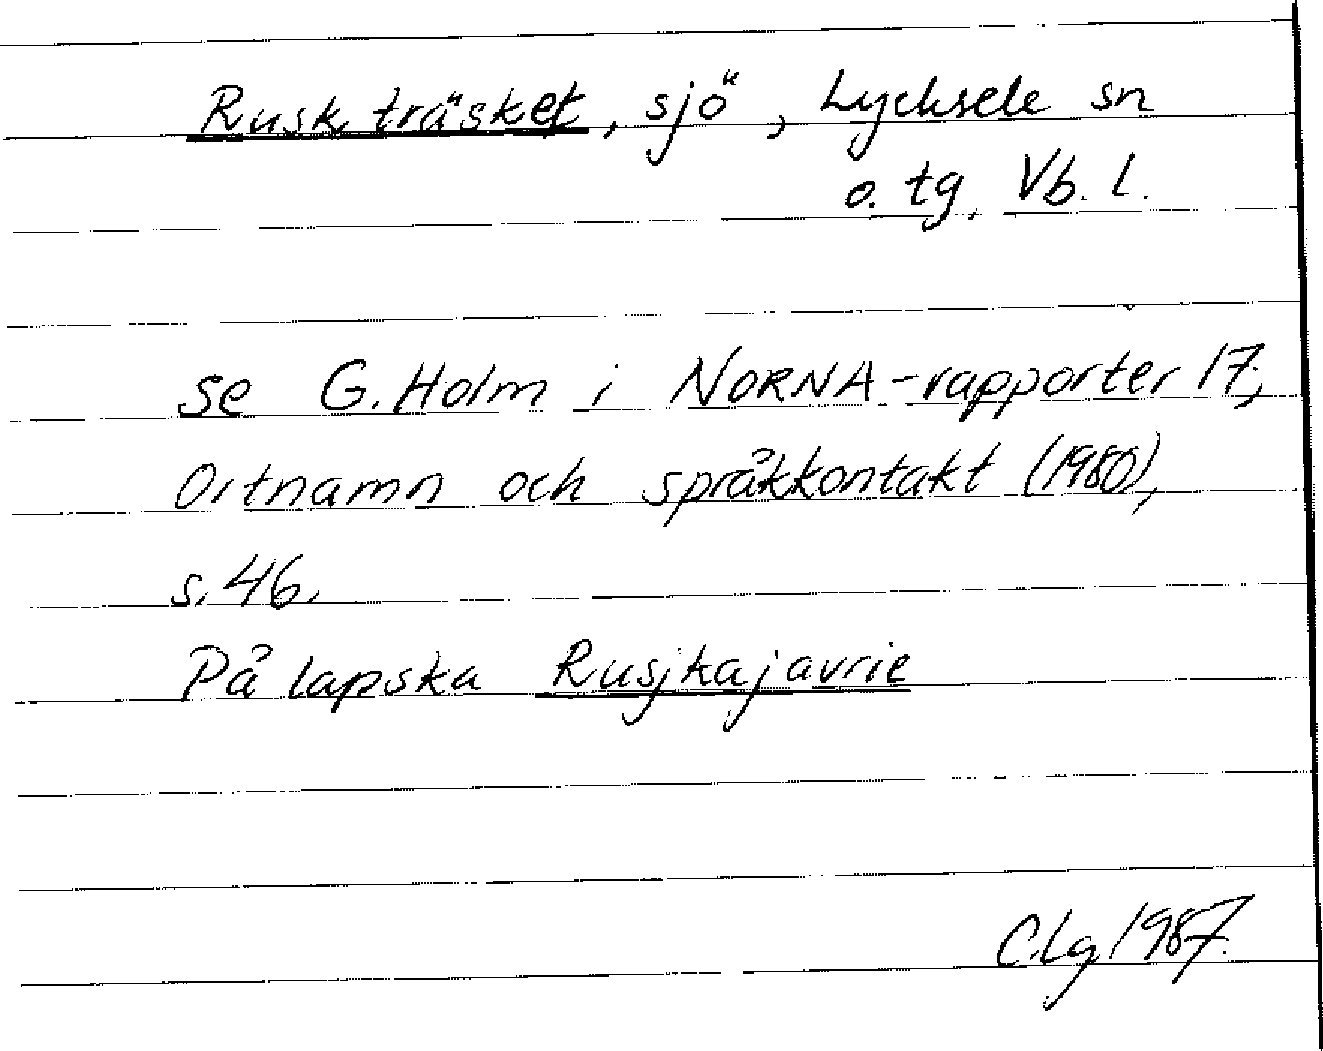 Ruskträsket, sjö, Lycksele sn
o. tg, Vb. l.
se G. Holm i NORNA-rapporter 17,
Ortnamn och språkkontakt (1980),
s. 46.
På lapska Rusjkajavrie
C.Lg 1987.